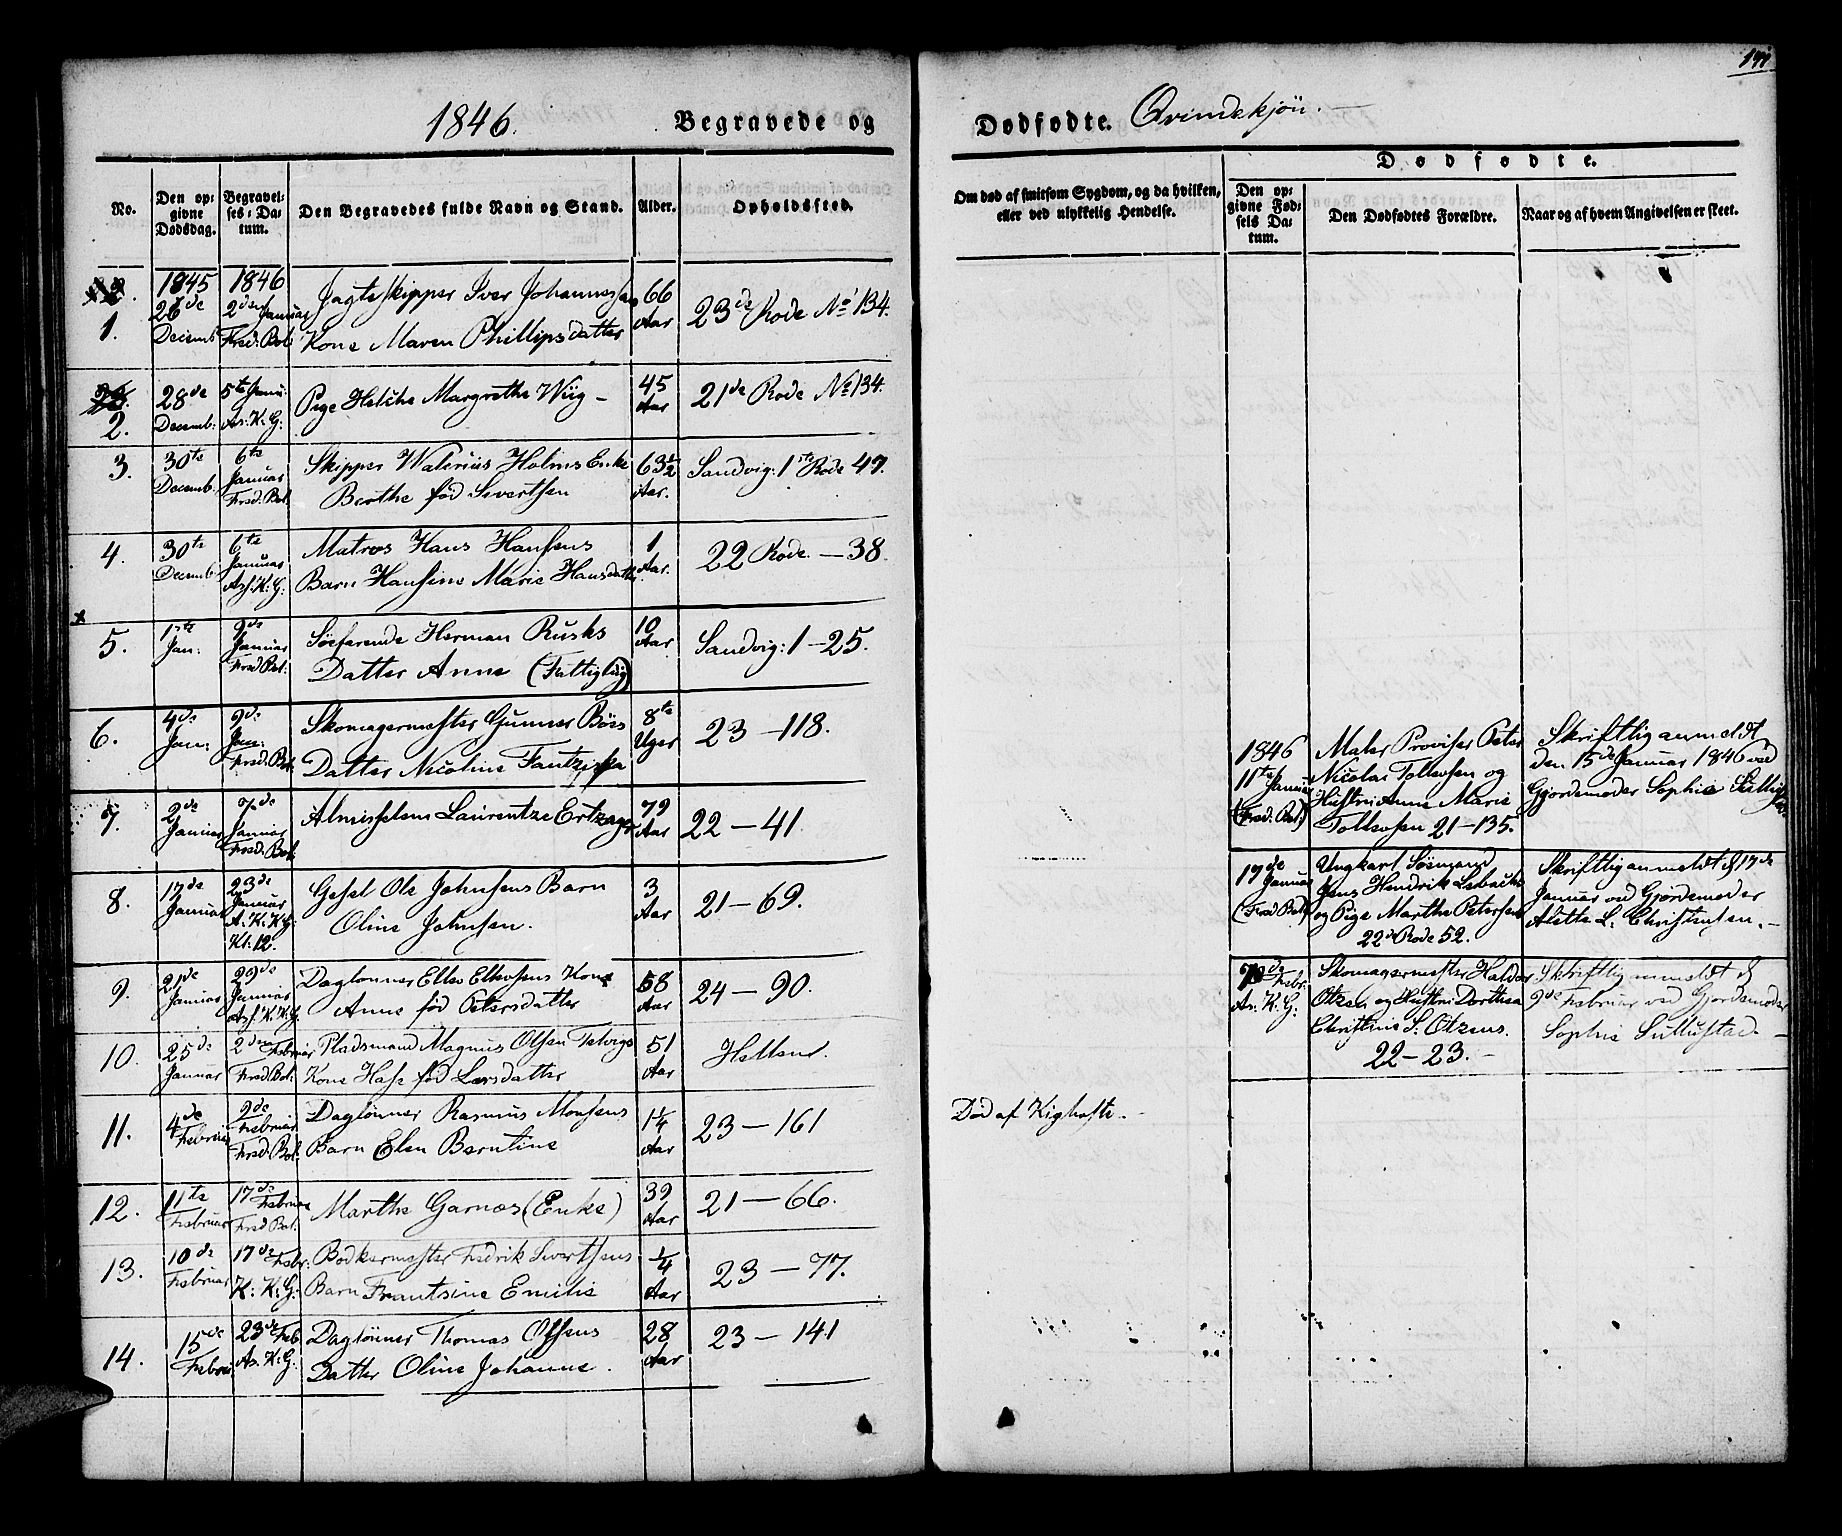 141
1846. Begravede og Dødfødte. Qvindekjøn.
No.
Den opgivne Dødsdag.
Begravelses-Datum.
Den Begravedes fulde Navn og Stand.
Alder.
Opholdssted.
Om død af smitsom Sygdom, og da hvilken,
eller ved ulykkelig Hendelse.
Dødfødte.
Den opgivne Fødsels Datum.
Den Dødfødtes Forældre.
Naar og af hvem Angivelsen er skeet.
1. 1845 26de Decemb 1846 2den Januar Fred: Bot: Jagteskipper Iver Johannesens 66 Aar 23de Rode No 134.
Kone Maren Phillipsdatter
2. 28de Decemb: 5te Janu: As: K: G: Pige Helche Margrethe Wiig - 45 Aar 21de Rode No 134.
3. 30te Decemb. 6te Januar Fred: Bot. Skipper Walerius Holms Enke 63½ Aar. Sandvig: 1ste Rode 47.
Berthe fød Sivertsen
4. 30te Decemb 6te Januar Asf. K: G: Matros Hans Hansens 1 Aar. 22 Rode. — 38.
Barn Hansine Marie Hansdatter
5. 1te Jan: 9de Januar Fred Bot: Søefarende Herman Rusks 10 Aar Sandvig: 1 — 25.
Datter Anne (Fattiglig)
6. 4de Jan: 9de Jan: Fred: Bot. Skomagermester Gunner Böes 8te Uger 23 — 118.
Datter Nicoline Fantziska
7. 2de Januar 7de Januar Fred: Bot: Almisselem Laurentze Ertzager 79 Aar 22 — 41.
8. 17de Januar 23de Januar A. K: K: G: Kl: 12. Gesel Ole Johnsens Barn 3 Aar 21 — 69.
Oline Johnsen.
9. 21de Januar 29de Januar Asf. K: K: G. Daglönner Elles Ellevsens Kone 58 Aar 24 — 90.
Anne fød Petersdatter
10. 25de Januar 2den Februar Fred: Bot: Pladsmand Magnus Olsen 51 Aar Hellend.
Kone fød Larsdatter
11. 4de Februar 9de Februar Fred: Bot. Daglönner Rasmus Monsens 1¼ Aar 23 — 161 Død af Kighoste.
Barn Elen Berntine
12. 11te Februar 17de Februar Fred Bot. Marthe Garnæs (Enke) 39 Aar 21 — 66.
13. 10de Februar 17de Febr: K: K: G: Bødkermester Fredrik Sivertsens ¼ Aar 23 — 77.
Barn Frantsine Emilie
14. 15de Februar 23de Feb As. K: G: Daglönner Thomas Olsens 28 Aar 23 — 141
Datter Oline Johanne.
1846 11te Januar (Fred: Bot:)
Maler Proviser Peter
Nicolai Tollevsen og
Hustru Anne Marie
Tollevsen 21 — 135.
Skriftlig anmeldt
den 15de Januar 1846 ved
Gjordemoder Sophie
17de Januar (Fred Bot)
Ungkarl Søemand
Jens Hendrik
og Pige Marthe Petersen
22de Rode 52.
Skriftlig anmeldt d 17de
Januar ved Gjordemoder
Alette L. Christensen. —
7de Febr: As. K: G:
Skomagermester Haldor
Olsen og Hustru Dorthea
Christine S. Olsens.
22 — 23. —
Skriftlig anmeldt d
9de Februar ved Gjordemoder
Sophie Sillustad. —